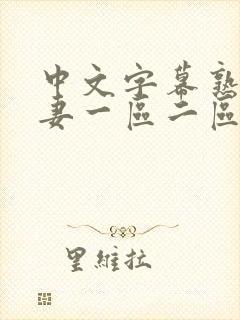 中文字幕熟
妻一區二區
里維拉